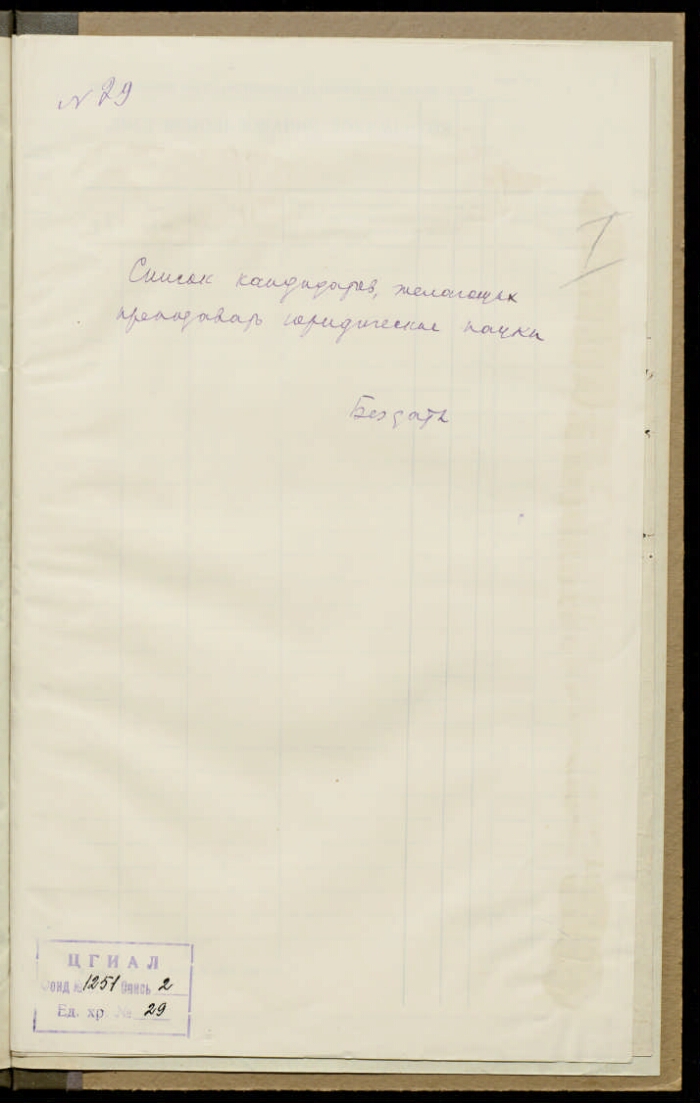 № 29
I
Список кандидатов, желающих
преподавать юридические науки
Без даты
ЦГИАЛ
Фонд № 1251 Опись 2
Ед. хр. № 29